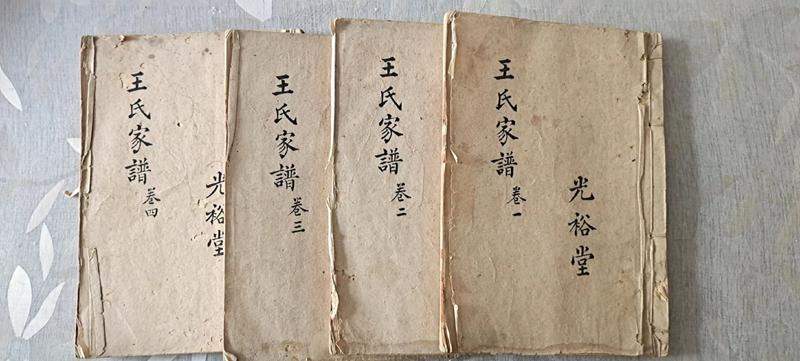 王氏家譜 卷一
光裕堂
王氏家譜 卷二
王氏家譜 卷三
王氏家譜 卷四
光裕堂